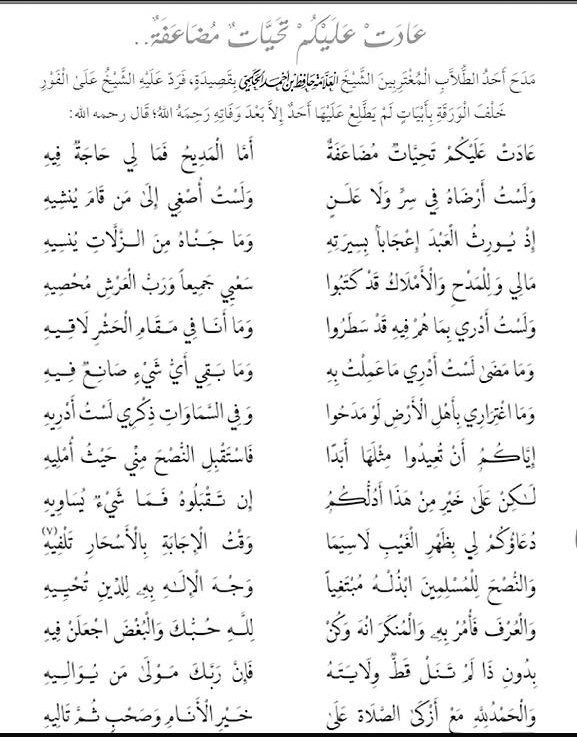 عَادَتْ عَلَيْكُمْ تَحِيَّاتٌ مُضَاعَفَةٌ...
مَدَحَ أَحَدُ الطُّلَّابِ الْمُغْتَرِبِينَ الشَّيْخَ العَلَّامَة حَافِظ بن أَحْمَد الحَكَمِي بِقَصِيدَةٍ، فَرَدَّ عَلَيْهِ الشَّيْخُ عَلَىٰ الْفَوْرِ
خَلْفَ الْوَرَقَةِ بِأَبْيَاتٍ لَمْ يَطَّلِعْ عَلَيْهَا أَحَدٌ إِلَّا بَعْدَ وَفَاتِهِ رَحِمَهُ اللهُ؛ قال رحمه الله:
عَادَتْ عَلَيْكُمْ تَحِيَّاتٌ مُضَاعَفَةٌ أَمَّا الْمَدِيحُ فَمَا لِي حَاجَةٌ فِيهِ
وَلَسْتُ أَرْضَاهُ فِي سِرٍّ وَلَا عَلَنٍ وَلَسْتُ أُصْغِي إِلَىٰ مَن قَامَ يُنْشِيهِ
إِذْ يُورِثُ الْعَبْدَ إِعْجَاباً بِسِيرَتِهِ وَمَا جَنَاهُ مِنَ الزَّلَّاتِ يُنْسِيهِ
مَالِي وَلِلْمَدْحِ وَالْأَمْلَاكُ قَدْ كَتَبُوا سَعْيِي جَمِيعاً وَرَبُّ الْعَرْشِ مُحْصِيهِ
وَلَسْتُ أَدْرِي بِمَا هُمْ فِيهِ قَدْ سَطَرُوا وَمَا أَنَا فِي مَقَامِ الْحَشْرِ لَاقِيهِ
وَمَا مَضَىٰ لَسْتُ أَدْرِي مَا عَمِلْتُ بِهِ وَمَا بَقِي أَيُّ شَيْءٍ صَانِعٌ فِيهِ
وَمَا اغْتِرَارِي بِأَهْلِ الْأَرْضِ لَوْ مَدَحُوا وَفِي السَّمَاوَاتِ ذِكْرِي لَسْتُ أَدْرِيهِ
إِيَّاكُمُ أَنْ تُعِيدُوا مِثْلَهَا أَبَدًا فَاسْتَقْبِلِ النُّصْحَ مِنِّي حَيْثُ أُمْلِيهِ
لَكِنْ عَلَىٰ خَيْرٍ مِنْ هَذَا أَدُلُّكُمُ إِن تَقْبَلُوهُ فَمَا شَيْءٌ يُسَاوِيهِ
دُعَاؤُكُمْ لِي بِظَهْرِ الْغَيْبِ لَاسِيَمَا وَقْتُ الْإِجَابَةِ بِالْأَسْحَارِ تَلْفِيْهِ(٧)
وَالنُّصْحَ لِلْمُسْلِمِينَ ابْذُلْهُ مُبْتَغِياً وَجْهَ الْإِلَهِ بِهِ لِلدِّينِ تُحْيِيهِ
وَالْعُرْفَ فَأْمُرْ بِهِ وَالْمُنْكَرَ انْهَ وَكُنْ لِلَّهِ حُبُّكَ وَالْبُغْضَ اجْعَلَنْ فِيهِ
بِدُونِ ذَا لَمْ تَنَلْ قَطُّ وِلَايَتَهُ فَإِنَّ رَبَّكَ مَوْلَىٰ مَن يُوَالِيهِ
وَالْحَمْدُ لِلَّهِ مَعْ أَزْكَىٰ الصَّلَاةِ عَلَىٰ خَيْرِ الْأَنَامِ وَصَحْبٍ ثُمَّ تَالِيهِ